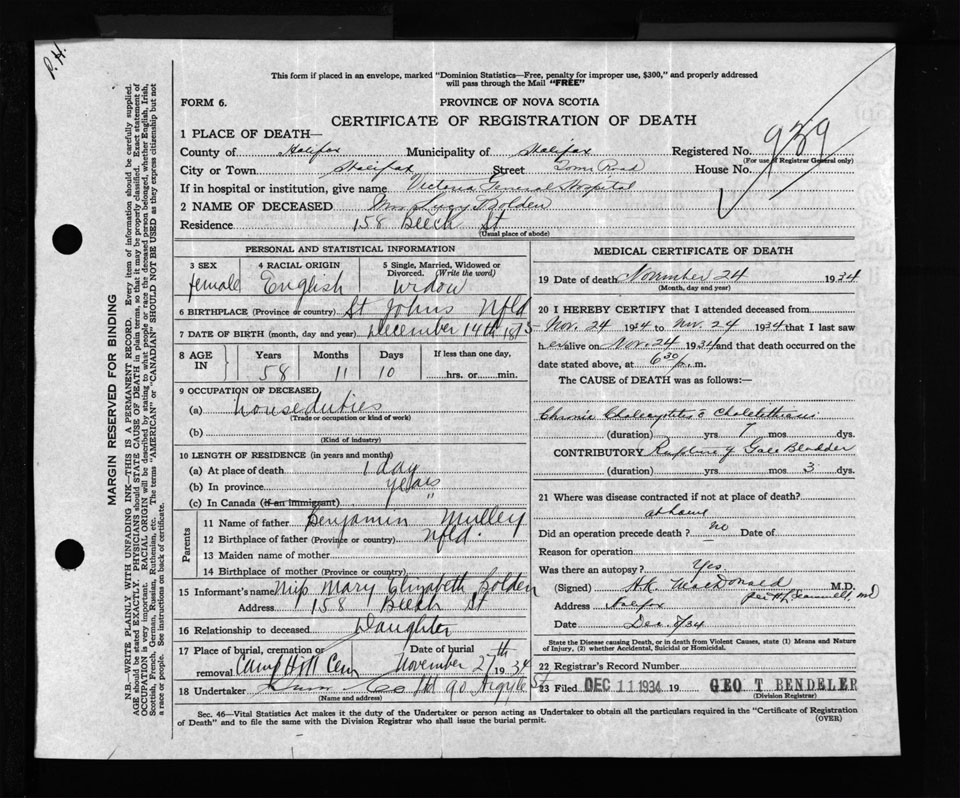 P.H.
This form if placed in an envelope, marked "Dominion Statistics—Free, penalty for improper use, $300," and properly addressed
will pass through the Mail "FREE"
FORM 6.
PROVINCE OF NOVA SCOTIA
CERTIFICATE OF REGISTRATION OF DEATH
1 PLACE OF DEATH—
County of Halifax Municipality of Halifax Registered No. 939
(For use of Registrar General only)
City or Town Halifax Street Tower Road House No.
If in hospital or institution, give name Victoria General Hospital
2 NAME OF DECEASED Mrs Lucy Bolden
Residence 158 Beech St
(Usual place of abode)
PERSONAL AND STATISTICAL INFORMATION
3 SEX female
4 RACIAL ORIGIN English
5 Single, Married, Widowed or Divorced. (Write the word) Widow
6 BIRTHPLACE (Province or country) St Johns Nfld
7 DATE OF BIRTH (month, day and year) December 14th 1875
8 AGE IN
Years 58
Months 11
Days 10
If less than one day,
hrs. or min.
9 OCCUPATION OF DECEASED,
(a) houseduties
(Trade or occupation or kind of work)
(b)
(Kind of industry)
10 LENGTH OF RESIDENCE (in years and months)
(a) At place of death 1 day
(b) In province years
(c) In Canada (if an immigrant) "
Parents
11 Name of father Benjamin Mulley
12 Birthplace of father (Province or country) Nfld.
13 Maiden name of mother
14 Birthplace of mother (Province or country)
15 Informant's name Miss Mary Elizabeth Bolden
Address 158 Beech St
16 Relationship to deceased Daughter
17 Place of burial, cremation or removal Camp Hill Cem
Date of burial November 27th 1934
18 Undertaker Co Ltd 90 Argyle St
(Name and address)
MEDICAL CERTIFICATE OF DEATH
19 Date of death November 24 1934
(Month, day and year)
20 I HEREBY CERTIFY that I attended deceased from
Nov. 24 1934 to Nov. 24 1934 that I last saw
her alive on Nov. 24 1934 and that death occurred on the
date stated above, at 6 30 p. m.
The CAUSE of DEATH was as follows:—
Chronic Cholecystitis & Cholelithiasis
(duration) yrs 7 mos dys.
CONTRIBUTORY Rupture of Gall Bladder
(duration) yrs mos 3 dys.
21 Where was disease contracted if not at place of death?
at home
Did an operation precede death? no Date of
Reason for operation
Was there an autopsy? Yes
(Signed) H.K. MacDonald M.D.
Address Halifax
Date Dec. 8/34
State the Disease causing Death, or in death from Violent Causes, state (1) Means and Nature
of Injury, (2) whether Accidental, Suicidal or Homicidal.
22 Registrar's Record Number
23 Filed DEC 11 1934 19 GEO T. BENDELER
(Division Registrar)
Sec. 46—Vital Statistics Act makes it the duty of the Undertaker or person acting as Undertaker to obtain all the particulars required in the "Certificate of Registration
of Death" and to file the same with the Division Registrar who shall issue the burial permit.
(OVER)
MARGIN RESERVED FOR BINDING
N.B.—WRITE PLAINLY WITH UNFADING INK—THIS IS A PERMANENT RECORD. Every item of information should be carefully supplied.
AGE should be stated EXACTLY. PHYSICIANS should STATE CAUSE OF DEATH in plain terms, so that it may be properly classified. Exact statement of
OCCUPATION is very important. RACIAL ORIGIN will be described by stating to what people or race the deceased person belonged, whether English, Irish,
Scottish, French, German, Russian, Ruthenian, etc. The terms "AMERICAN" or "CANADIAN" SHOULD NOT BE USED as they express citizenship but not
a race or people. See instructions on back of certificate.